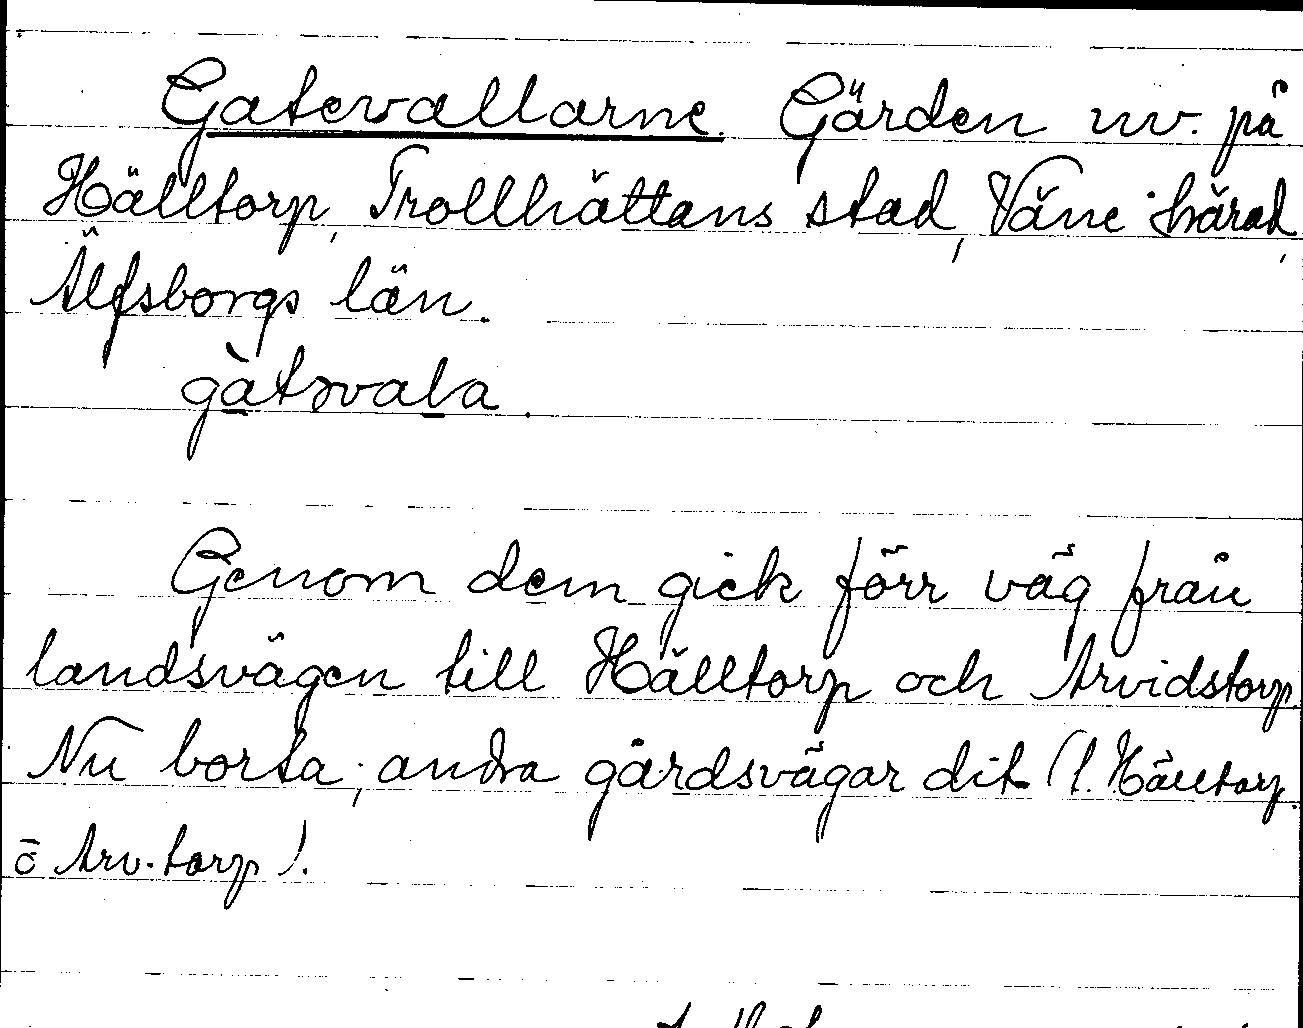 Gatevallarne. Gärden nv. på
Hälltorp, Trollhättans stad, Väne härad,
Älfsborgs län.
gàtəvala.
Genom dem gick förr väg från
landsvägen till Hälltorp och Arvidstorp.
Nu borta; andra gårdsvägar dit (t. Hälltorp.
ō Arv. torp).